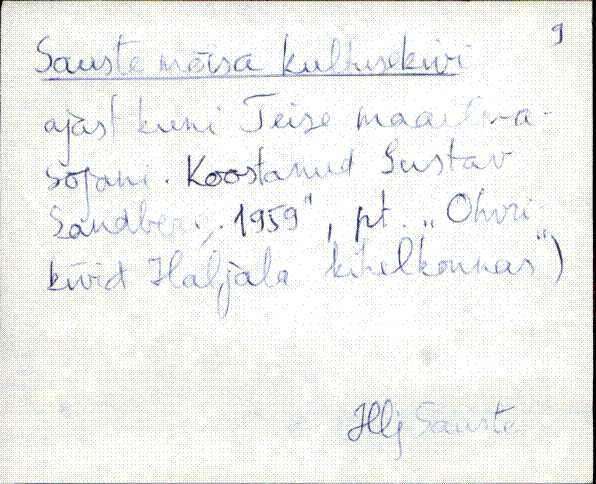 9
Sauste mõisa kultusekivi
ajast kuni Teise maailma-
sõjani. Koostanud Gustav
Sandberg. 1959", pt. „Ohvri-
kivid Haljala kihelkonnas")
Hlj Sauste